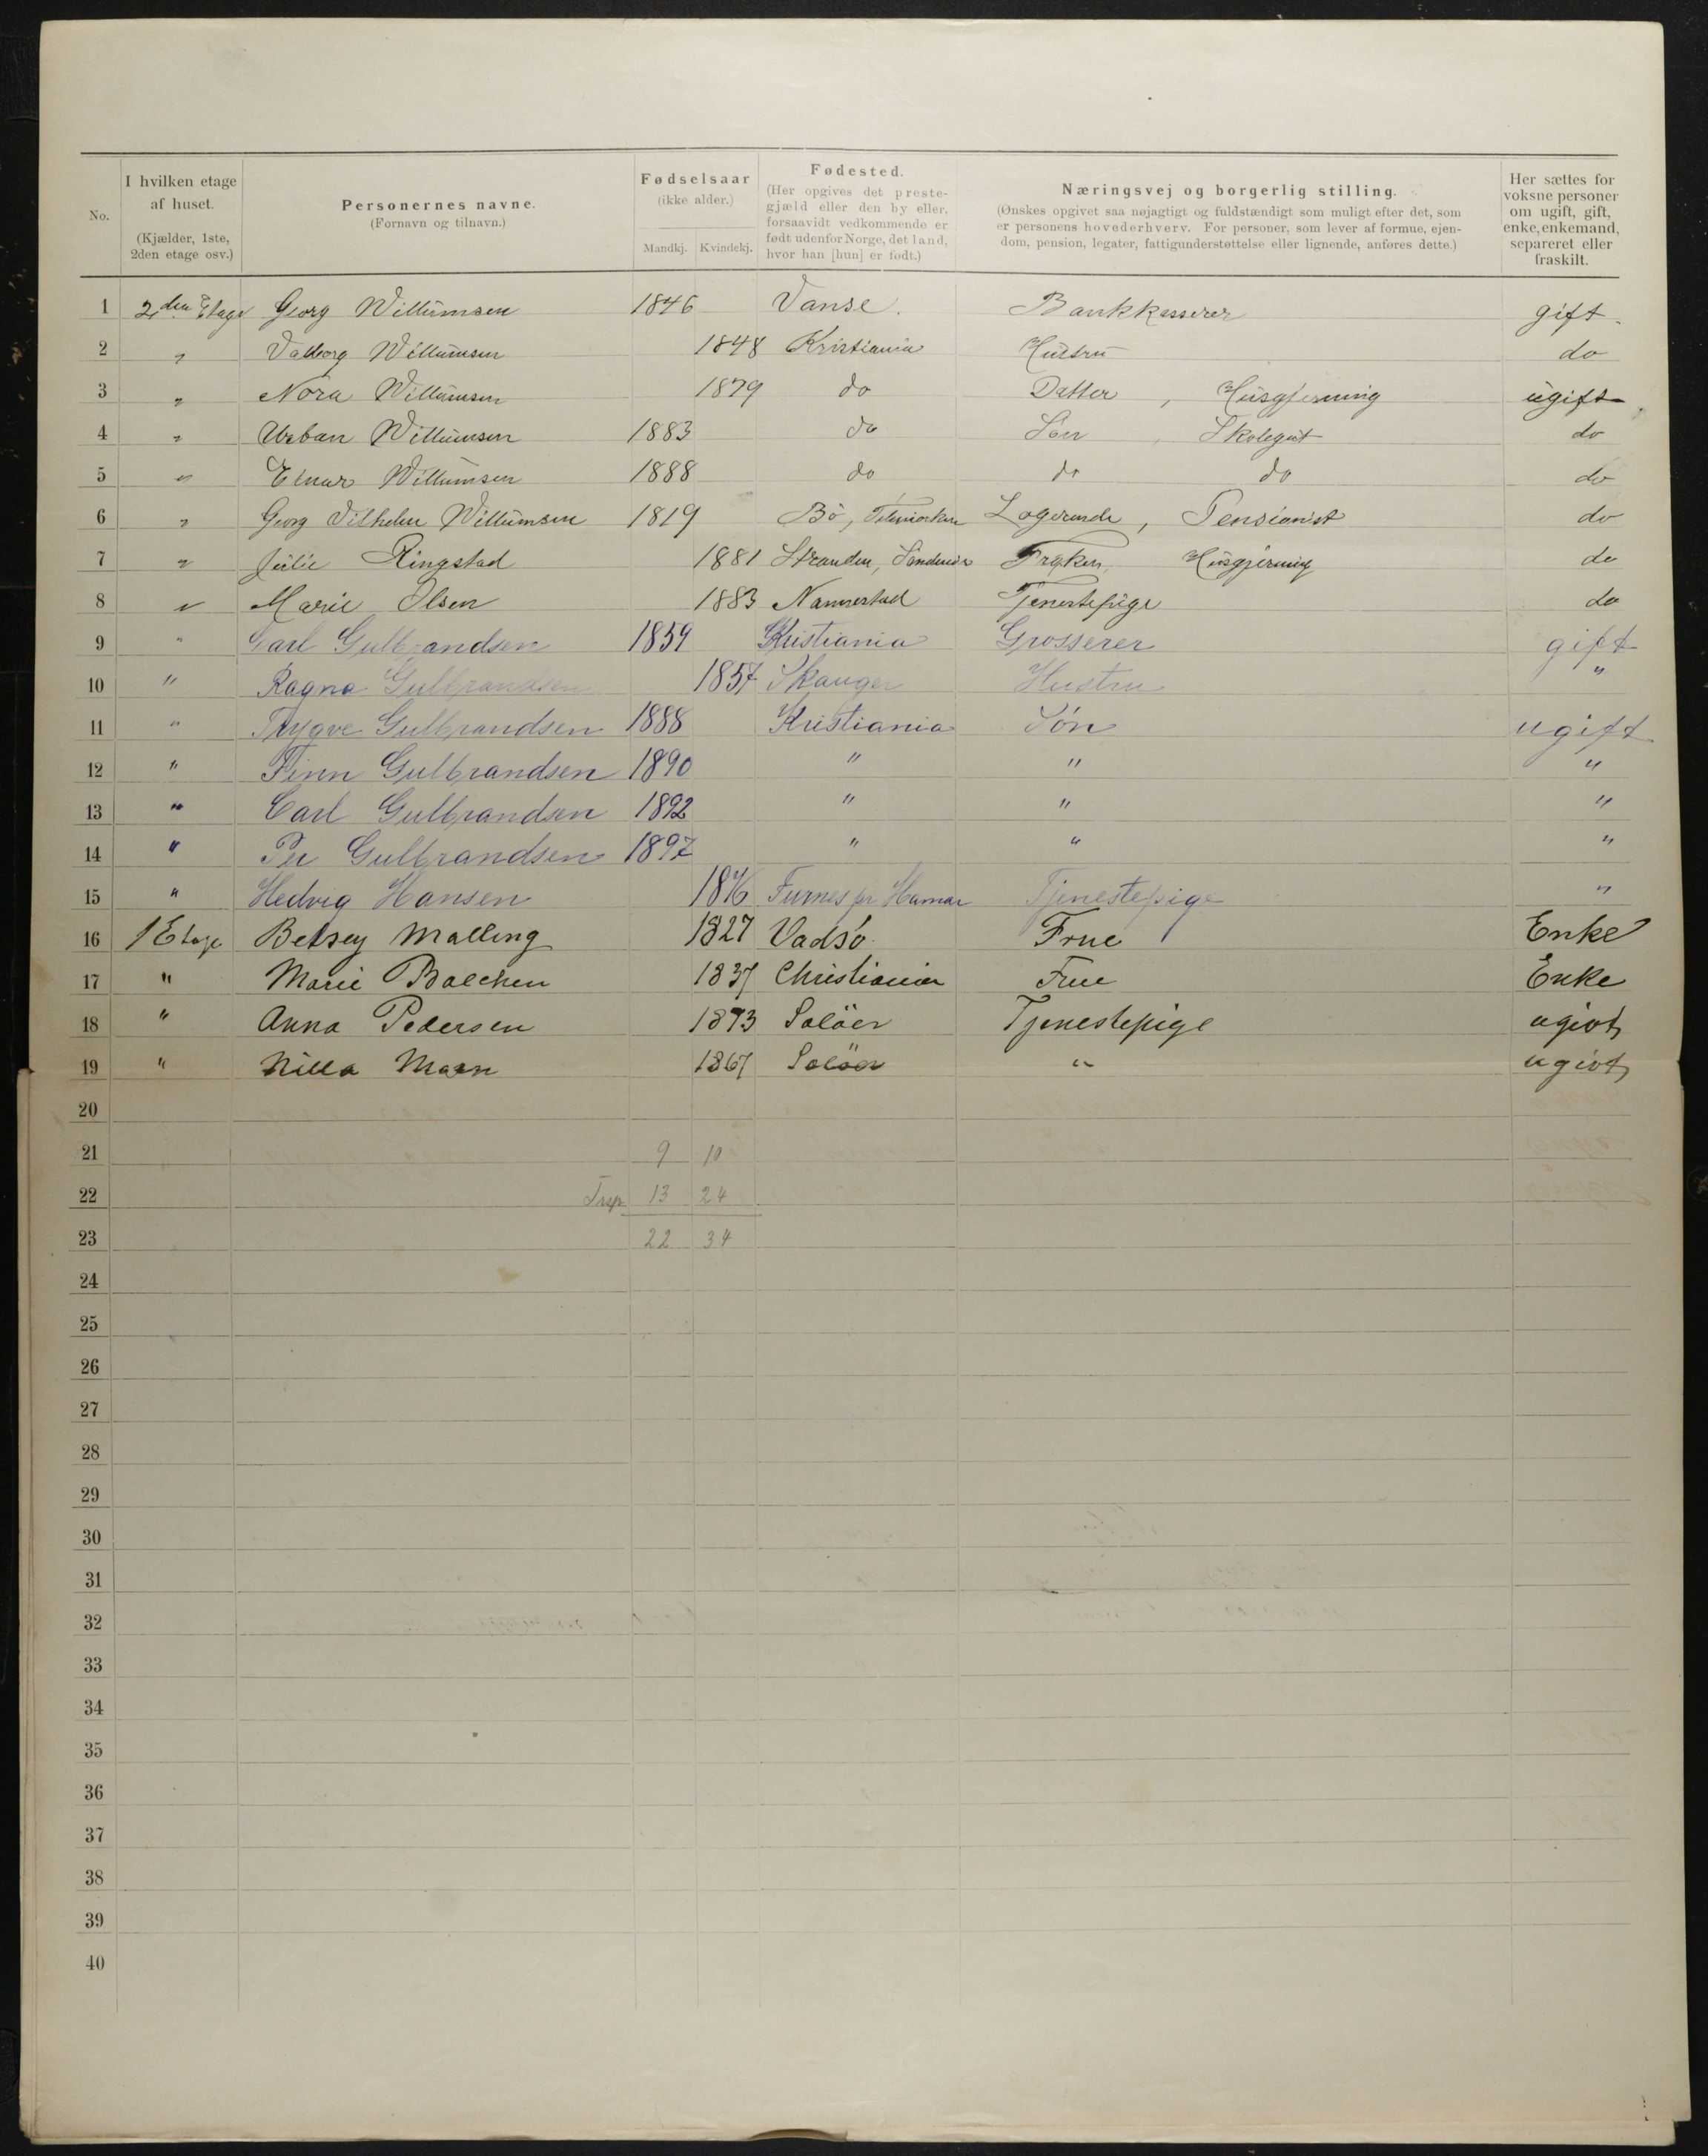 No.
I hvilken etage af huset. (Kjælder, 1ste, 2den etage osv.)
Personernes navne. (Fornavn og tilnavn.)
Fødselsaar (ikke alder.) Mandkj. Kvindekj.
Fødested. (Her opgives det prestegjæld eller den by eller, forsaavidt vedkommende er født udenfor Norge, det land, hvor han [hun] er født.)
Næringsvej og borgerlig stilling. (Ønskes opgivet saa nøjagtigt og fuldstændigt som muligt efter det, som er personens hovederhverv. For personer, som lever af formue, ejendom, pension, legater, fattigunderstøttelse eller lignende, anføres dette.)
Her sættes for voksne personer om ugift, gift, enke, enkemand, separeret eller fraskilt.
1 2den Etage Georg Willumsen 1846 Vanse. Bankkasserer gift.
2 " Valborg Willumsen 1848 Kristiania Hustru do
3 " Nora Willumsen 1879 do Datter, Husgjerning ugift
4 " Urban Willumsen 1883 do Søn, Skolegut do
5 " Einar Willumsen 1888 do do do do
6 " Georg Vilhelm Willumsen 1819 Bö, Telemarken Logerende, Pensionist do
7 " Julie Ringstad 1881 Stranden, Frøken, Husgjerning do
8 " Marie Olsen 1883 Nannestad Tjenestepige do
9 " Carl Gulbrandsen 1859 Kristiania Grosserer gift
10 " Ragna Gulbrandsen 1857 Skauger Hustru "
11 " Trygve Gulbrandsen 1888 Kristiania Søn ugift
12 " Finn Gulbrandsen 1890 " " "
13 " Carl Gulbrandsen 1892 " " "
14 " Per Gulbrandsen 1897 " " "
15 " Hedvig Hansen Furnes pr Hamar Tjenestepige "
16 1 Etage Betsey Malling 1827 Vadsö Frue Enke
17 " Marie Balchen 1837 Christiania Frue Enke
18 " Anna Pedersen 1873 Solöer Tjenestepige ugivt
19 " Milla Moen 1867 Solöer " ugivt
20
21 9 10
22 Trsp 13 24
23 22 34
24
25
26
27
28
29
30
31
32
33
34
35
36
37
38
39
40